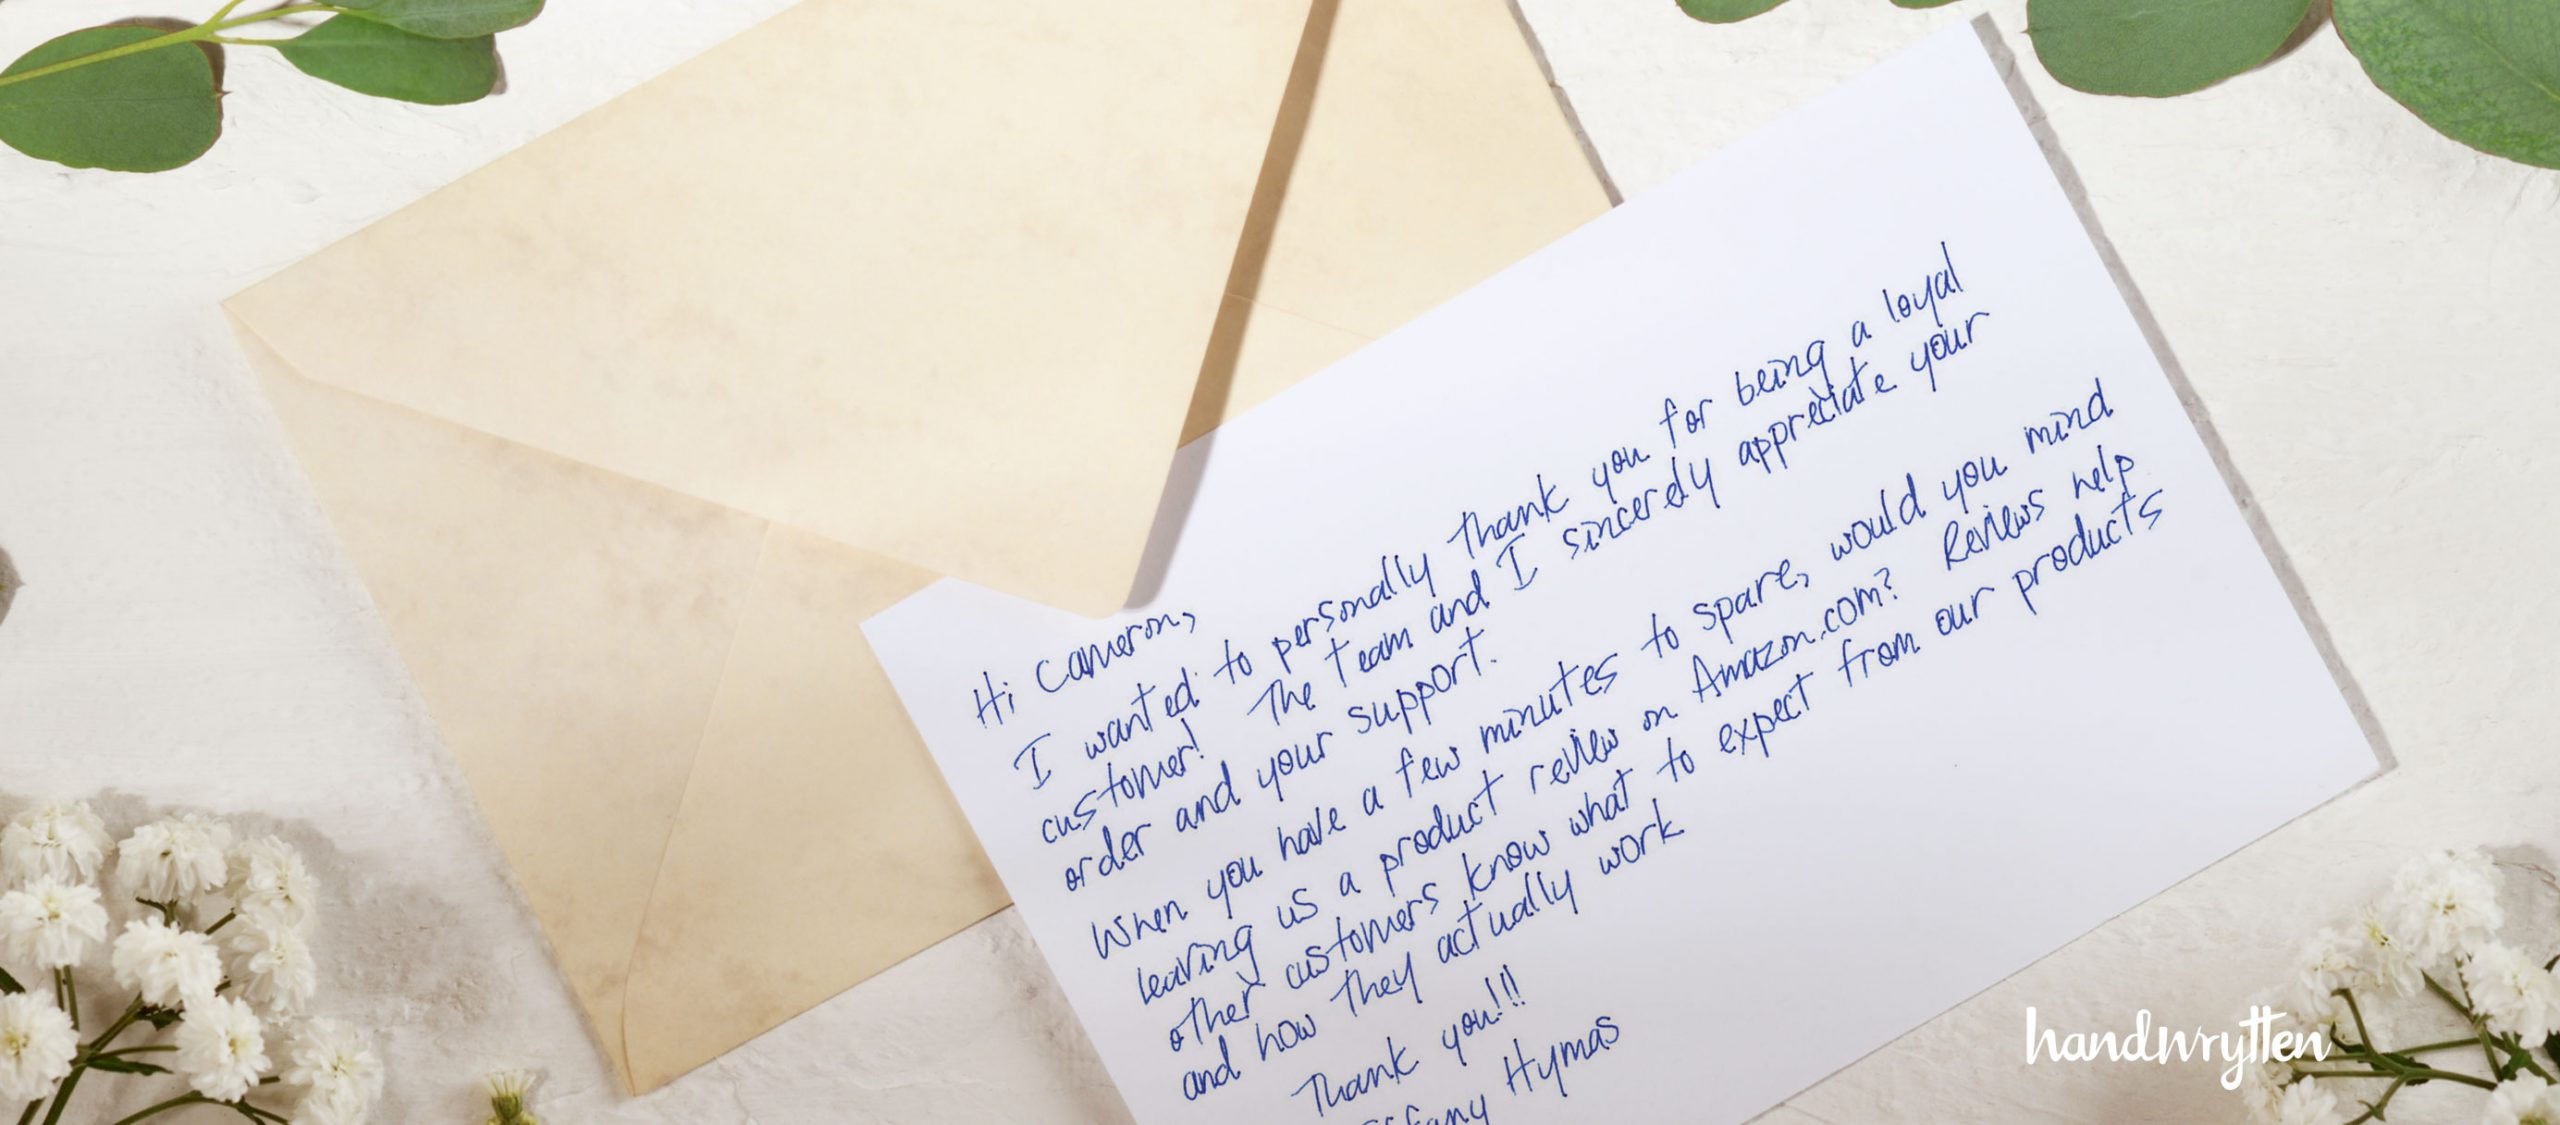 Hi Cameron,
I wanted to personally thank you for being a loyal
customer! The team and I sincerely appreciate your
order and your support.
When you have a few minutes to spare, would you mind
leaving us a product review on Amazon.com? Reviews help
other customers know what to expect from our products
and how they actually work
Thank you!!!
Hymas
handwrytten